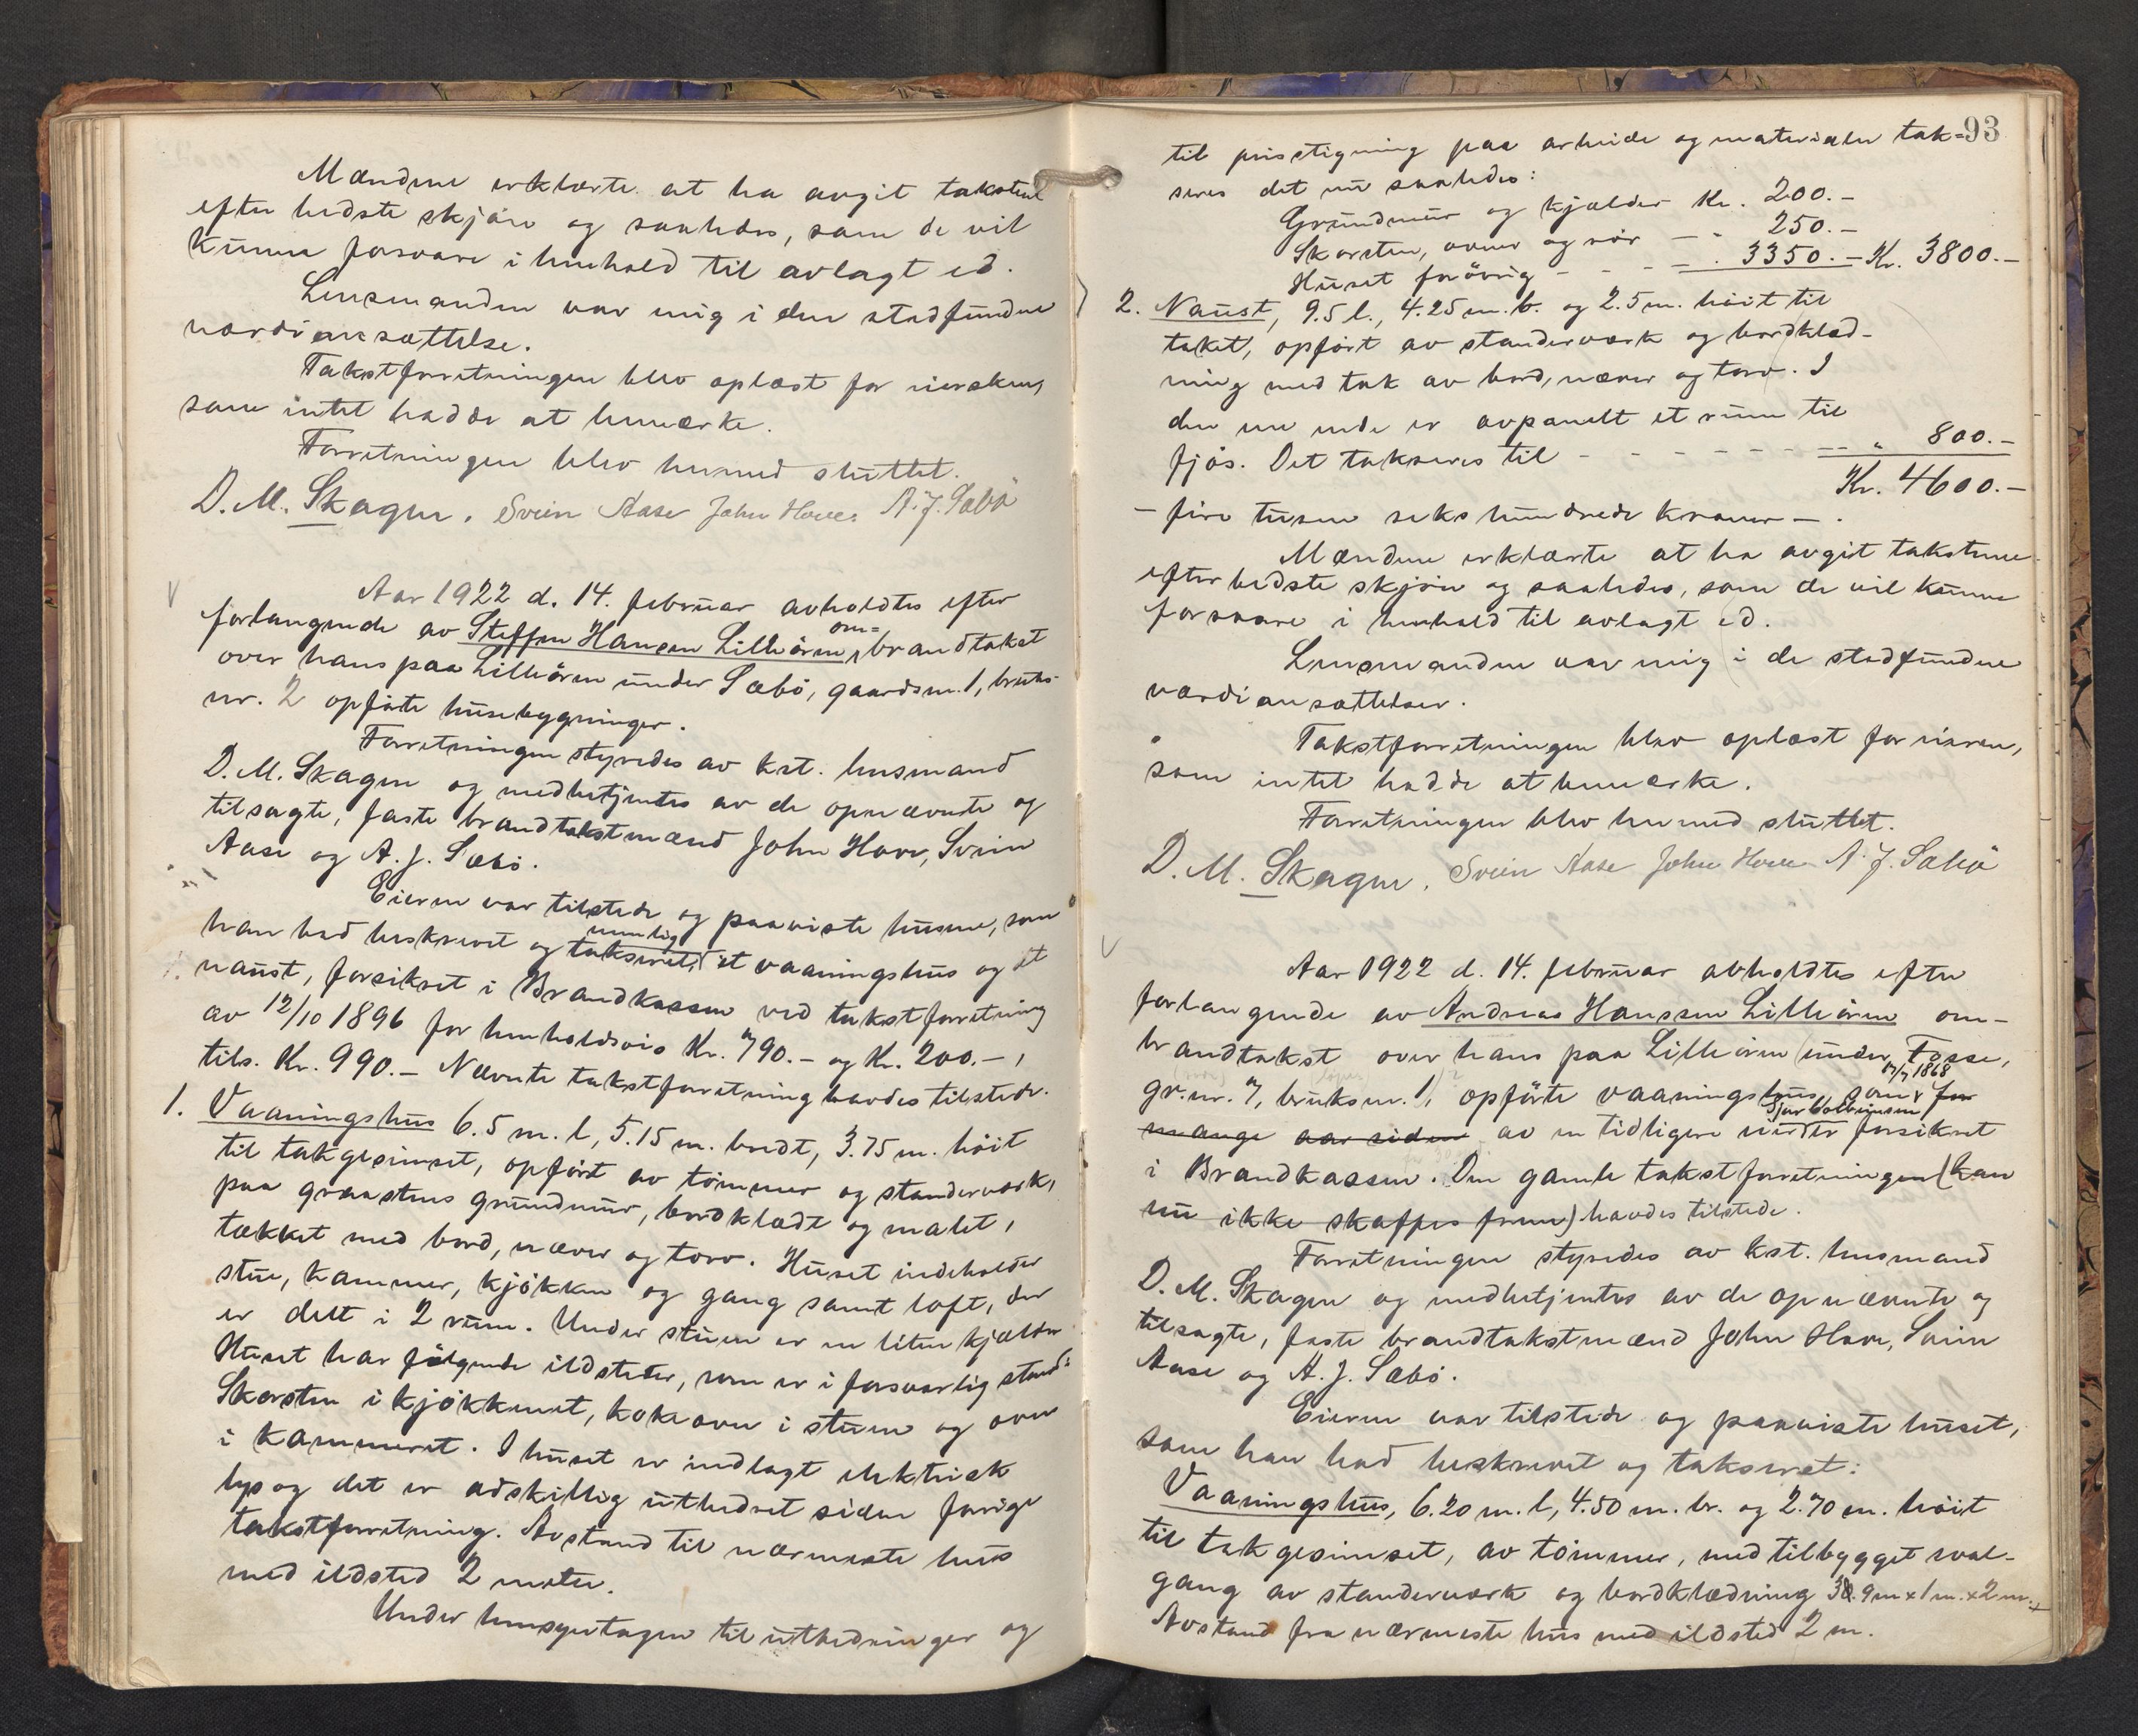 Mændene erklærte at ha avgit taksten
efter bedste skjøn og saaledes, som de vil
kunne forsvare i henhold til avlagt ed.
Lensmanden var enig i den stedfundne
værdiansættelse.
Takstforretningen blev oplæst for eiersken,
som intet hadde at bemærke.
Forretningen blev hermed sluttet.
D. M. Skagen. Svein Aase John Hove. A. J. Sæbö
Aar 1922 d. 14. februar avholdtes efter
forlangende av Steffen Hansen Lilleören om=
brandtakst
over hans paa Lilleören under Sæbö, gaardsnr. 1, bruks-
nr. 2 opförte husebygninger.
Forretningen styredes av kst. lensmand
D. M. Skagen og medbetjentes av de opnævnte og
tilsagte, faste brandtakstmænd John Hove, Svein
Aase og A. J. Sæbö.
Eieren var tilstede og paaviste husene, som
han bad beskrevet og taksert, nemlig et vaaningshus og et
naust, forsikret i Brandkassen ved takstforretning
av 12/10 1896 for henholdsvis Kr. 790.- og Kr. 200.-,
tils. Kr. 990.- Nævnte takstforretning havdes tilstede.
1. Vaaningshus 6.5 m. l, 5.15 m. bredt, 3.75 m. höit
til takgesimset, opfört av tömmer og standerverk,
paa graastens grundmur, bordklædt og malet,
tækket med bord, næver og torv. Huset indeholder
stue, kammer, kjökken og gang samt loft, der
er delt i 2 rum. Under stuen er en liten kjælder
Huset har fölgende ildsteder, som er i forsvarlig stand:
Skorsten i kjökkenet, kokeovn i stuen og ovn
i kammeret. I huset er indlagt elektrisk
lys og det er adskillig utbedret siden forrige
takstforretning. Avstand til nærmeste hus
med ildsted 2 meter.
Under hensyntagen til utbedringer og
93
til prisstigning paa arbeide og materialer tak=
seres det nu saaledes:
Grundmur og kjælder Kr. 200.-
Skorsten, ovner og rör - " 250.-
Huset forövrig - - - - " 3350.- Kr. 3800.-
2. Naust, 9.5 l., 4.25 m. b. og 2.5 m. höit til
taket, opfört av standerværk og bordklæd-
ning med tak av bord, næver og torv. I
den ene ende er avpanelt et rum til
fjös. Det takseres til - - - - - - - - " 800.-
Kr. 4600.-
- fire tusen sekshundrede kroner -.
Mændene erklærte at ha avgit takstene
efter bedste skjön og saaledes, som de vil kunne
forsvare i henhold til avlagt ed.
Lensmanden var enig i de stedfundne
værdiansættelser.
Takstforretningen blev oplæst for eieren,
som intet hadde at bemærke.
Forretningen blev hermed sluttet.
D. M. Skagen. Svein Aase John Hove A. J. Sæbö
Aar 1922 d. 14. februar avholdtes efter
forlangende av Andreas Hansen Lilleören om-
brandtakst over hans paa Lilleören (under Fosse,
gr.nr. 7, bruksnr. 1) opförte vaaningshus, som 1868 for
mange aar siden av en tidligere eier er forsikret
i Brandkassen. Den gamle takstforretningen (kan
nu ikke skaffes frem) havdes tilstede.
Forretningen styredes av kst. lensmand
D. M. Skagen og medbetjentes av de opnævnte og
tilsagte, faste brandtakstmænd John Hove, Svein
Aase og A. J. Sæbö.
Eieren var tilstede og paaviste huset,
som han bad beskrevet og taksert:
Vaaningshus, 6.20 m. l, 4.50 m. br. og 2.70 m. höit
til takgesimset, av tömmer, med tilbygget sval-
gang av standerværk og bordklædning 3.9 m x 1 m. x 2 m.
Avstand fra nærmeste hus med ildsted 2 m.